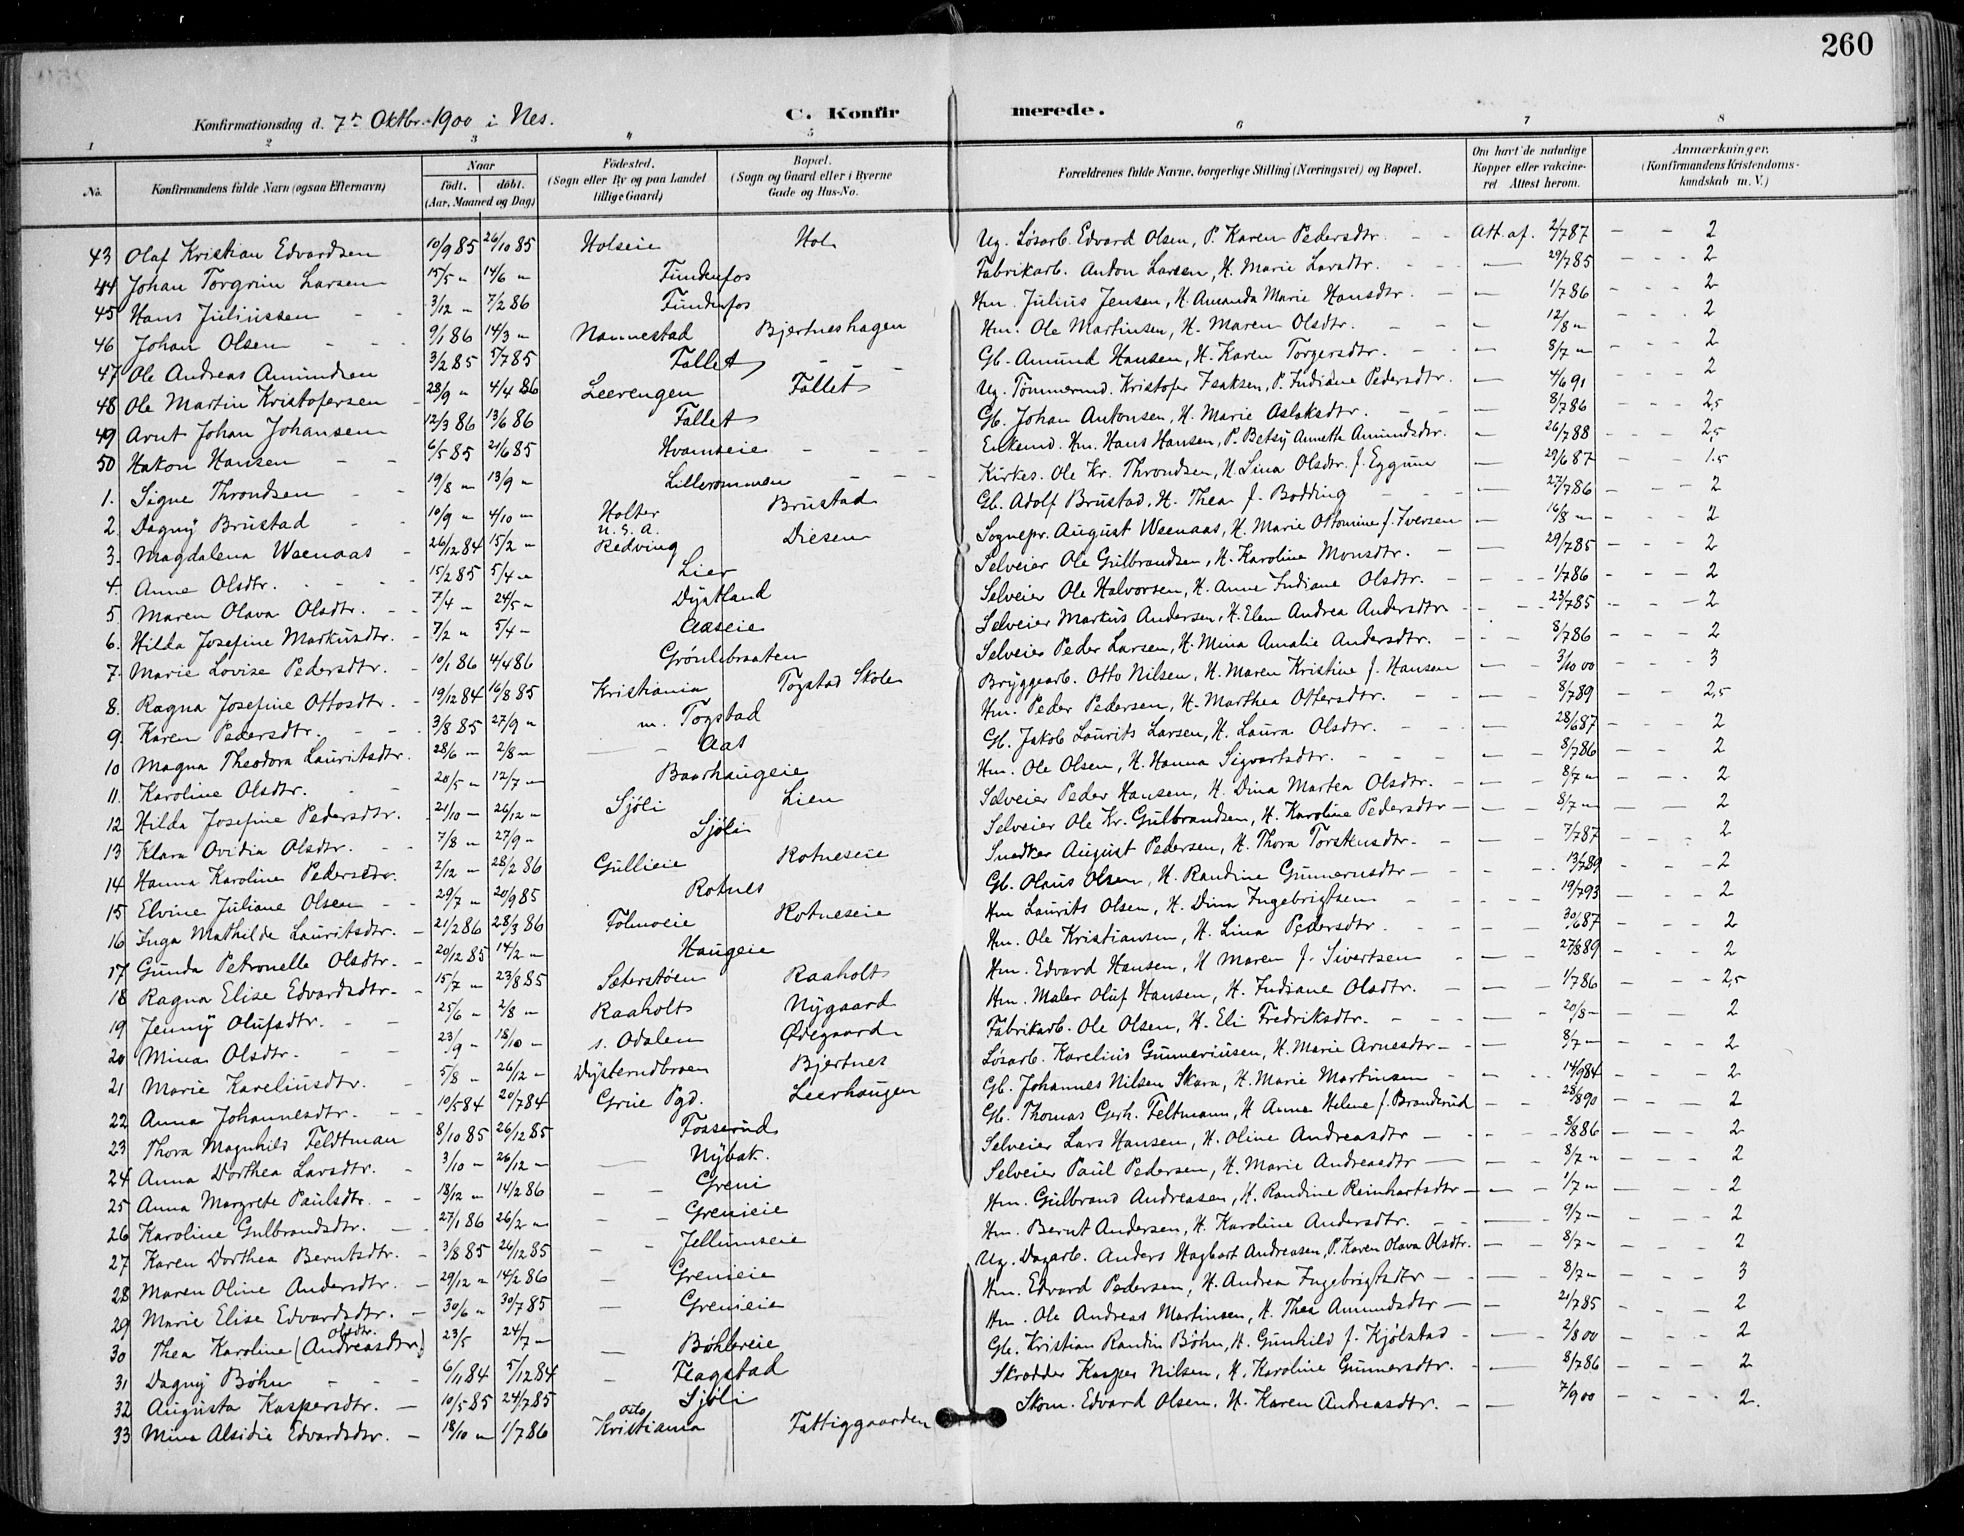 260
Konfirmationsdag d. 7de Oktbr. 1900 i Nes. C. Konfirmerede.
1 2 3 4 5 6 7 8
No. Konfirmandens fulde Navn (ogsaa Efternavn) Naar født. døbt. (Aar, Maaned og Dag) Fødested. (Sogn eller By og paa Landet tillige Gaard) Bopæl. (Sogn og Gaard eller i Byerne Gade og Hus-No. Forældrenes fulde Navne, borgerlige Stilling (Næringsvei) og Bopæl. Om havt de naturlige Kopper eller vakcineret. Attest herom. Anmærkninger. (Konfirmandens Kristendomskundskab m. V.)
43 Olaf Kristian Edvardsen 10/9 85 26/10 85 Holseie Hol Ug. Løsarb. Edvard Olsen, P. Karen Pedersdtr. Att. af. 2/7 87 2
44 Johan Torgrim Larsen 15/5 " 14/6 " Fundenfos Fabrikarb. Anton Larsen, H. Marie Larsdtr. 29/7 85 2
45 Hans Juliussen 3/12 " 7/2 86 Fundenfos Hm. Julius Jensen, H. Amanda Marie Hansdtr. 1/7 86 2
46 Johan Olsen 9/1 86 14/3 " Nannestad Bjertneshagen Hm. Ole Martinsen, H. Maren Olsdtr. 12/8 " 2
47 Ole Andreas Amundsen 3/2 85 5/7 85 Fallet Gb. Amund Hansen, H. Karen Torgersdtr. 8/7 " 2
48 Ole Martin Kristofersen 28/9 " 4/4 86 Leerengen Fallet Ug. Tømmermd. Kristofer Isaksen, P. Indiane Pedersdtr. 4/6 91 2
49 Arnt Johan Johansen 12/3 86 13/6 86 Fallet Gb. Johan Antonsen, H. Marie Aslaksdtr. 8/7 86 2,5
50 Hakon Hansen 6/5 85 21/6 85 Hvamseie Enkemd. Hm. Hans Hansen, P. Betsy Annette Amundsdtr. 26/7 88 2,5
1. Signe Throndsen 19/8 " 13/9 " Lillerommen Kirkes. Ole Kr. Throndsen, H. Lina Olsdtr. f. Eggum 29/6 87 1.5
2. Dagny Brustad 10/9 " 4/10 " Holter Brustad Gb. Adolf Brustad, H. Thea f. Bodding 27/7 86 2
3. Magdalena Weenaas 26/12 84 15/2 " U.S.A. Redving Diesen Sognepr. August Weenaas, H. Marie Ottomine f. Iversen 16/8 " 2
4. Anne Olsdtr. 15/2 85 5/4 " Lier Selveier Ole Gulbrandsen, H. Karoline Monsdtr. 29/7 85 2
5 Maren Olava Olsdtr. 7/4 " 24/5 " Dystland Selveier Ole Halvorsen, H. Anne Indiane Olsdtr. 1/7 86 2
6. Hilda Josefine Markusdtr. 7/2 " 5/4 " Aaseie Selveier Markus Andersen, H. Elen Andrea Andersdtr 23/7 85 2
7. Marie Lovise Pedersdtr. 10/1 86 4/4 86 Grønlibraaten Selveier Peder Larsen, H. Mina Amalie Andersdtr. 8/7 86 2
8. Ragna Josefine Ottosdtr. 19/12 84 16/8 85 Kristiania Togstad Skole Bryggearb. Otto Nilsen, H. Maren Kristine f. Hansen 3/10 00 3
9. Karen Pedersdtr. 3/8 85 27/9 " m. Togstad Hm. Peder Pedersen, H. Marthea Ottersdtr. 8/7 89 2,5
10 Magna Theodora Lauritsdtr. 28/6 " 2/8 " Aas Gb. Jakob Laurits Larsen, H. Laura Olsdtr. 28/6 87 2
11. Karoline Olsdtr. 20/5 " 12/7 " Baarhaugeie Hm. Ole Olsen, H. Hanna Sigvartsdtr. 8/7 86 2
12 Hilda Josefine Pedersdtr. 21/10 " 26/12 " Sjøli Lien Selveier Peder Hansen, H. Dina Martea Olsdtr. 8/7 " 2
13 Klara Ovidia Olsdtr. 7/8 " 27/9 " Sjøli Selveier Ole Kr. Gulbrandsen, H. Karoline Pedersdtr 8/7 " 2
14 Hanna Karoline Pedersdtr. 2/12 " 28/2 86 Gullieie Rotneseie Snedker August Pedersen, H. Thora Torskusdtr. 7/7 87 2
15 Elvine Juliane Olsen 29/7 " 20/9 85 Rotnes Gb. Olaus Olsen, H. Randine Gunnerusdtr 13/7 89 2
16 Inga Mathilde Lauritsdtr. 21/2 86 28/3 86 Folmoeie Rotneseie Hm Laurits Olsen, H. Dina Ingebrigtsen 19/7 93 2
17 Gunda Petronelle Olsdtr. 20/12 85 14/2 " Haugeie Hm. Ole Kristiansen, H. Lina Pedersdtr 30/6 87 2
18 Ragna Elise Edvardsdtr. 15/7 " 23/8 85 Sæterstøen Raaholt Hm. Edvard Hansen, H Maren f. Sivertsen 27/6 89 2
19 Jenny Olufsdtr. 25/6 " 2/8 " Raaholt Nygaard Hm. Maler Oluf Hansen, H. Indiane Olsdtr. 1/7 86 2,5
20 Mina Olsdtr. 23/9 " 18/10 " s. Odalen Ødegaard Fabrikarb. Ole Olsen, H. Eli Fredriksdtr. 20/8 " 2
21 Marie Kareliusdtr. 5/8 " 26/12 " Dysterudbroen Bjertnes Løsarb. Karelius Gunneriusen, H. Marie Arnesdtr 8/7 " 2
22 Anna Johannesdtr. 10/5 84 20/7 84 Grue Pgd. Leerhaugen Gb. Johannes Nilsen Skara, H. Marie Martinsen 14/9 84 2
23 Thora Magnhild Feldtman 8/10 85 26/12 85 Fosserud Gb. Thomas Gerh. Feltmann, H Anne Helene f. Branderud 28/8 90 2
24 Anna Dorthea Larsdtr. 3/10 " 26/12 " Nybak. Selveier Lars Hansen, H. Oline Andreasdtr 8/8 86 2
25 Anna Margrete Paulsdtr. 13/12 " 14/2 86 Greni Selveier Paul Pedersen, H. Marie Andreasdtr 8/7 " 2
26 Karoline Gulbrandsdtr. 27/1 86 26/2 " Grenieie Hm. Gulbrand Andreasen, H. Randine Reinhartsdtr 1/7 " 2
27 Karen Dorthea Berntsdtr. 3/8 85 26/12 85 Jellumseie Hm. Bernt Andersen, H. Karoline Andersdtr. 9/7 " 2
28 Maren Oline Andersdtr. 29/12 " 14/2 86 Grenieie Ug. Dagarb. Anders Hagbart Andreasen, P. Karen Olava Olsdtr. 8/7 " 2
29 Marie Elise Edvardsdtr. 30/6 " 30/7 85 Grenieie Hm. Edvard Pedersen, H. Andrea Ingebrigtsdtr 8/7 " 3
30 Thea Karoline (Andreasdtr) Olsdtr. 23/5 24/7 " Bøhlereie Hm. Ole Andreas Martinsen, H. Thea Amundsdtr 21/7 85 2
31 Dagny Bøhn 6/11 84 5/12 84 Hagstad Gb. Kristian Randin Bøhn, H. Gunhild f. Kjølstad 2/8 00 2
32 Augusta Kaspersdtr. 10/5 85 24/7 85 Sjøli Skrædder Kasper Nilsen, H. Karoline Gunnersdtr. 8/7 86 2
33 Mina Alsidie Edvardsdtr. 18/10 " 1/7 86 Oslo Kristiania Fattiggaarden Skom. Edvard Olsen, H. Karen Andreasdtr. 7/9 00 2.